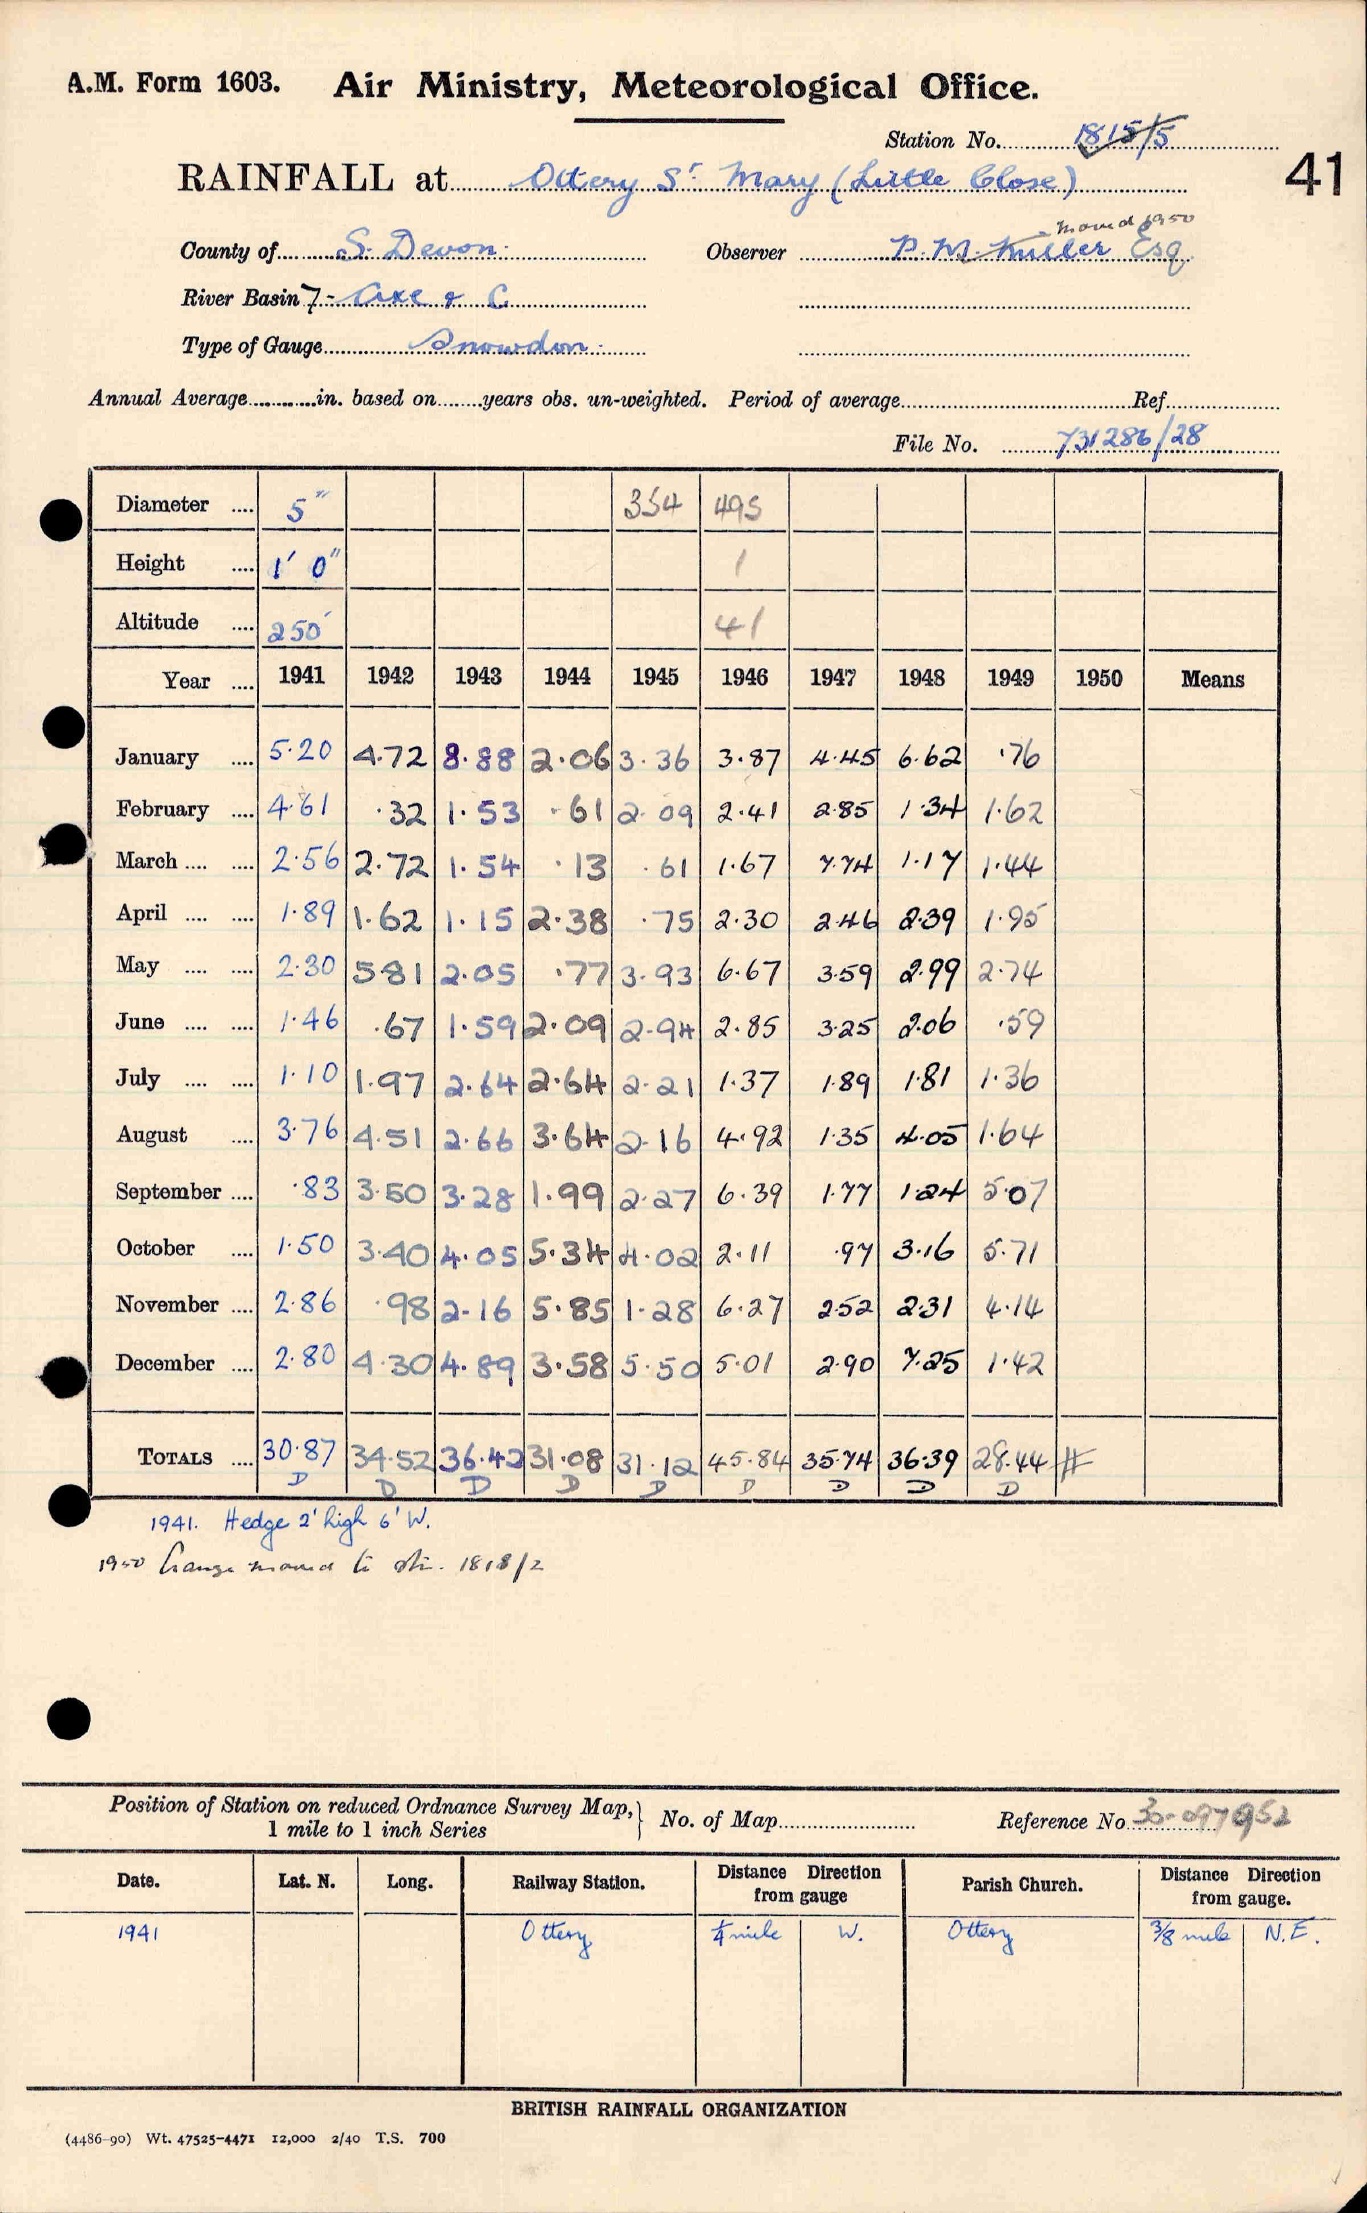 A.M. Form 1603. Air Ministry, Meteorological Office.
Station No. 1815/5
41
RAINFALL at Ottery St Mary (Little Close)
moved 1950
County of S. Devon. Observer P. M. Muller Esq
River Basin 7 - Axe & C
Type of Gauge Snowdon.
Annual Average in. based on years obs. un-weighted. Period of average Ref
File No. 731286/28
Diameter .... 5" 354 495
Height .... 1' 0" 1
Altitude .... 250' 41
Year .... 1941 1942 1943 1944 1945 1946 1947 1948 1949 1950 Means
January .... 5.20 4.72 8.88 2.06 3.36 3.87 4.45 6.62 .76
February .... 4.61 .32 1.53 .61 2.09 2.41 2.85 1.34 1.62
March .... .... 2.56 2.72 1.54 .13 .61 1.67 7.74 1.17 1.44
April .... .... 1.89 1.62 1.15 2.38 .75 2.30 2.46 2.39 1.95
May .... .... 2.30 5.81 2.05 .77 3.93 6.67 3.59 2.99 2.74
June .... .... 1.46 .67 1.59 2.09 2.94 2.85 3.25 2.06 .59
July .... .... 1.10 1.97 2.64 2.64 2.21 1.37 1.89 1.81 1.36
August .... 3.76 4.51 2.66 3.64 2.16 4.92 1.35 4.05 1.64
September .... .83 3.50 3.28 1.99 2.27 6.39 1.77 1.24 5.07
October .... 1.50 3.40 4.05 5.34 4.02 2.11 .97 3.16 5.71
November .... 2.86 .98 2.16 5.85 1.28 6.27 2.52 2.31 4.14
December .... 2.80 4.30 4.89 3.58 5.50 5.01 2.90 7.25 1.42
TOTALS .... 30.87 34.52 36.42 31.08 31.12 45.84 35.74 36.39 28.44 #
D D D D D D D D D
1941. Hedge 2' high 6' W.
1950 Gauge moved to stn. 1818/2
Position of Station on reduced Ordnance Survey Map, } No. of Map Reference No. 30-097952
1 mile to 1 inch Series
Date. Lat. N. Long. Railway Station. Distance Direction from gauge Parish Church. Distance Direction from gauge.
1941 Ottery 1/4 mile W. Ottery 3/8 mile N.E.
BRITISH RAINFALL ORGANIZATION
(4486-90) Wt. 47525-4471 12,000 2/40 T.S. 700